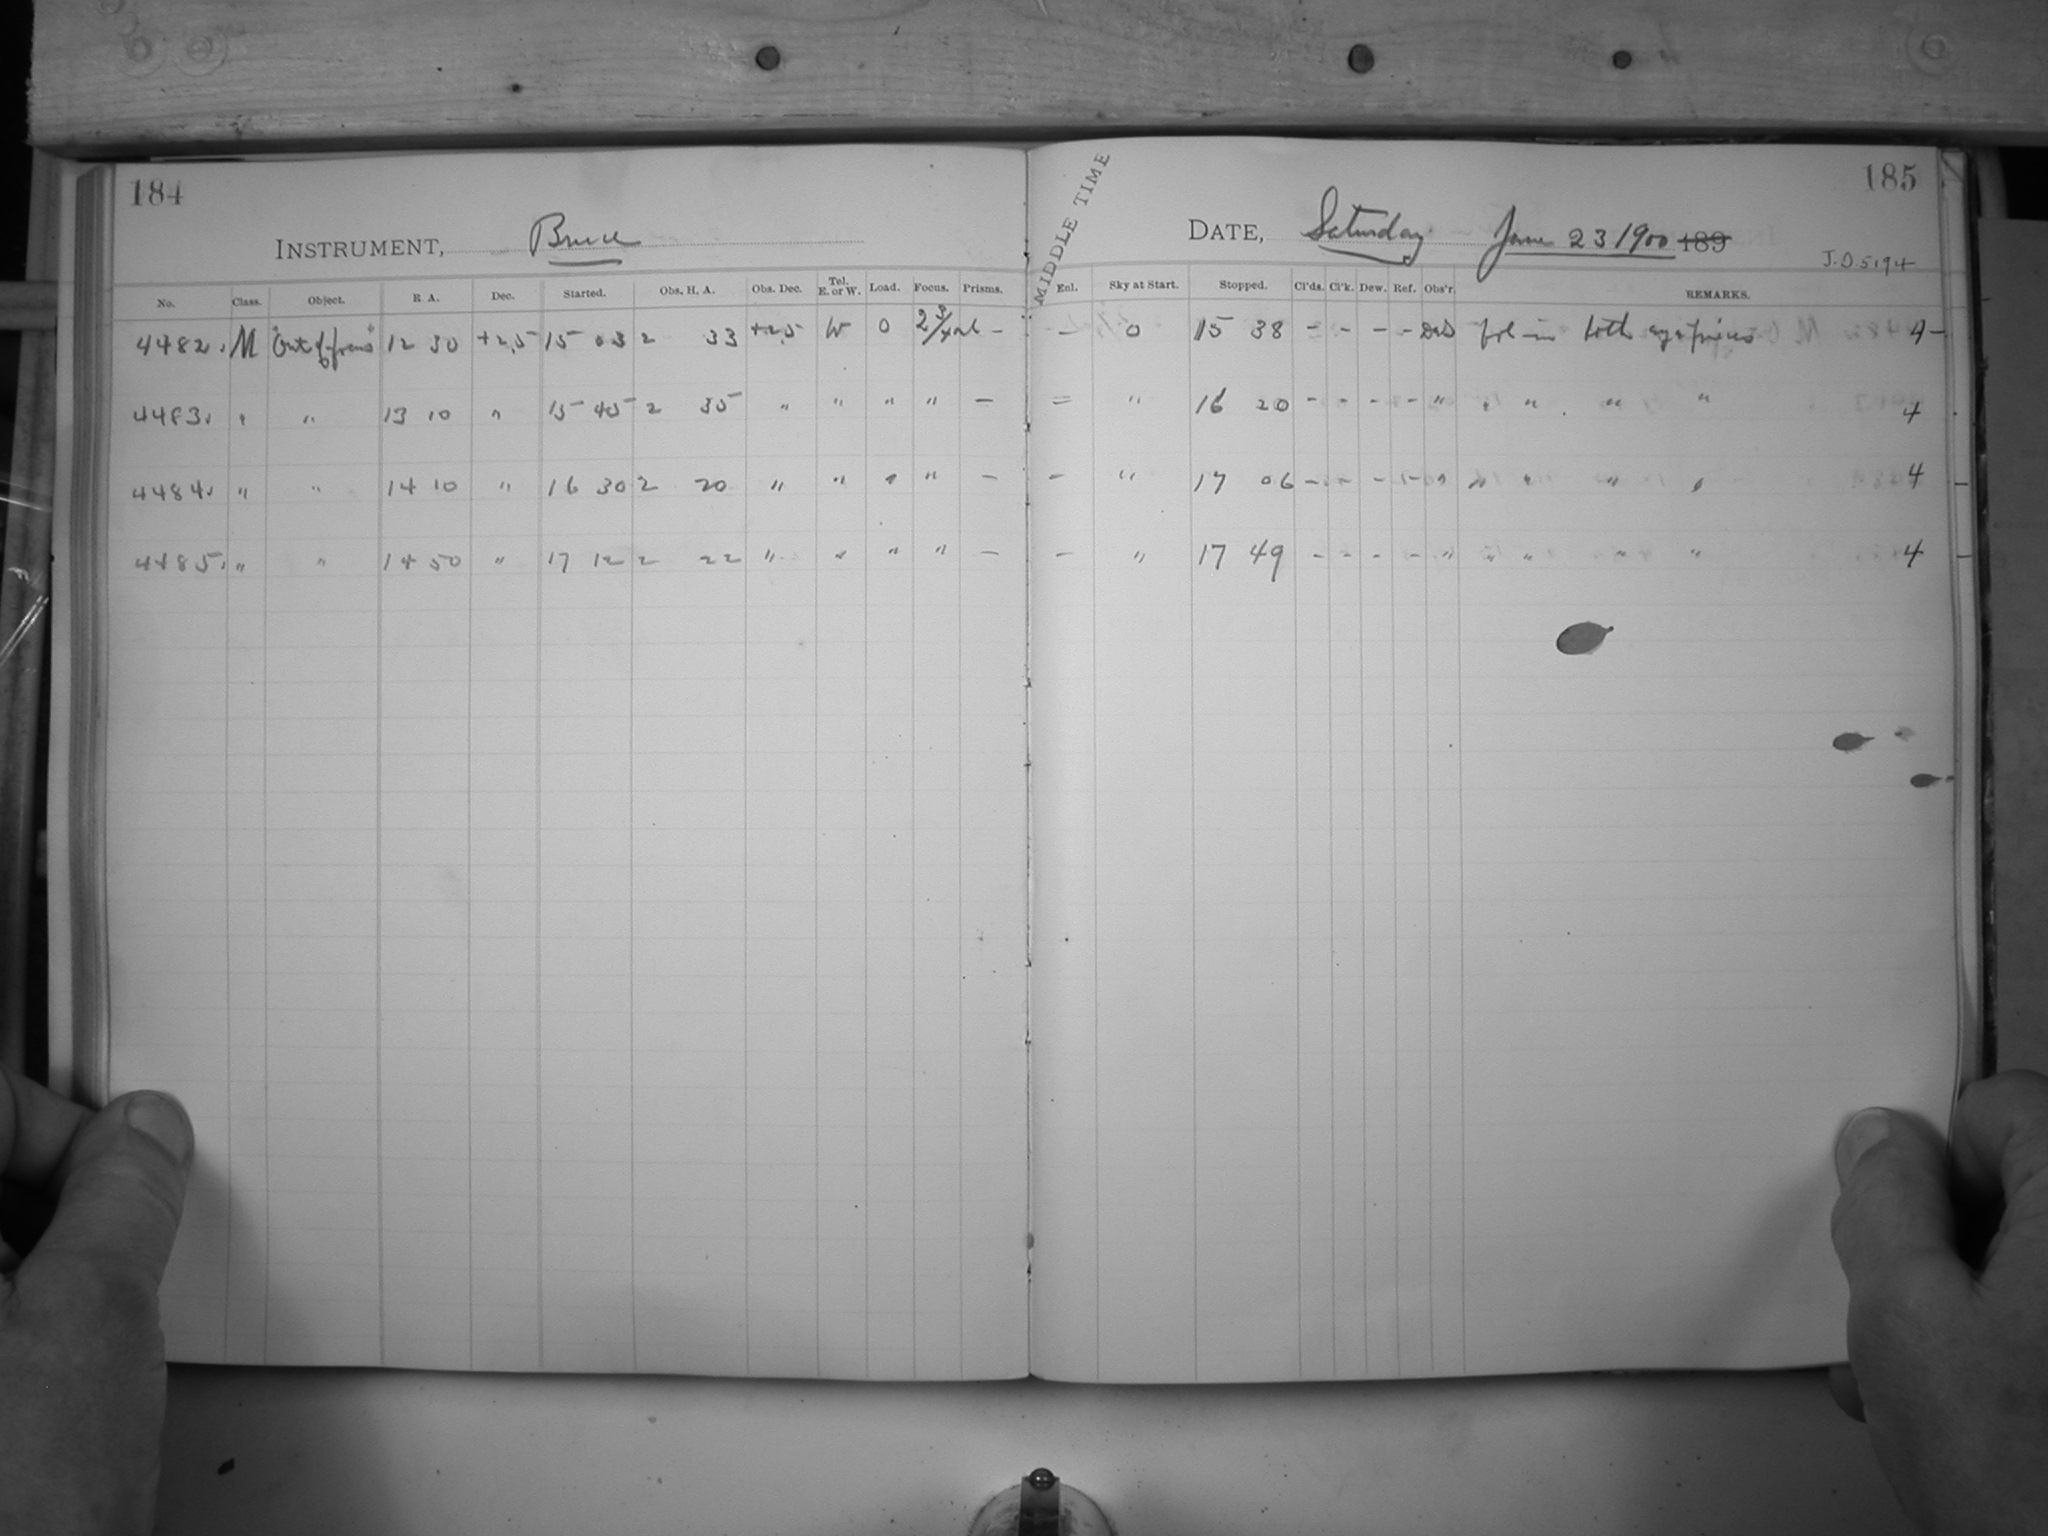 184
INSTRUMENT, Bruce
No. Class. Object. R A. Dec. Started. Obs. H. A. Obs. Dec. Tel. E. or W. Load. Focus. Prisms.
4482. M "Out of focus" 12 30 +2,5 15 03 2 33 +2,5 W 0 2 3/4 —
4483. " " 13 10 " 15 45 2 35 " " " " —
4484. " " 14 10 " 16 30 2 20 " " " " —
4485. " " 14 50 " 17 12 2 22 " " " " —
MIDDLE TIME
185
DATE, Saturday June 23 1900 189
J.D. 5194
Enl. Sky at Start. Stopped. Cl'ds. Cl'k. Dew. Ref. Obs'r. REMARKS.
— 0 15 38 - - - - in both eyepieces 4 -
= " 16 20 - - - - " " " " " 4
- " 17 06 - - - - " " " " " 4
- " 17 49 - - - - " " " " " 4